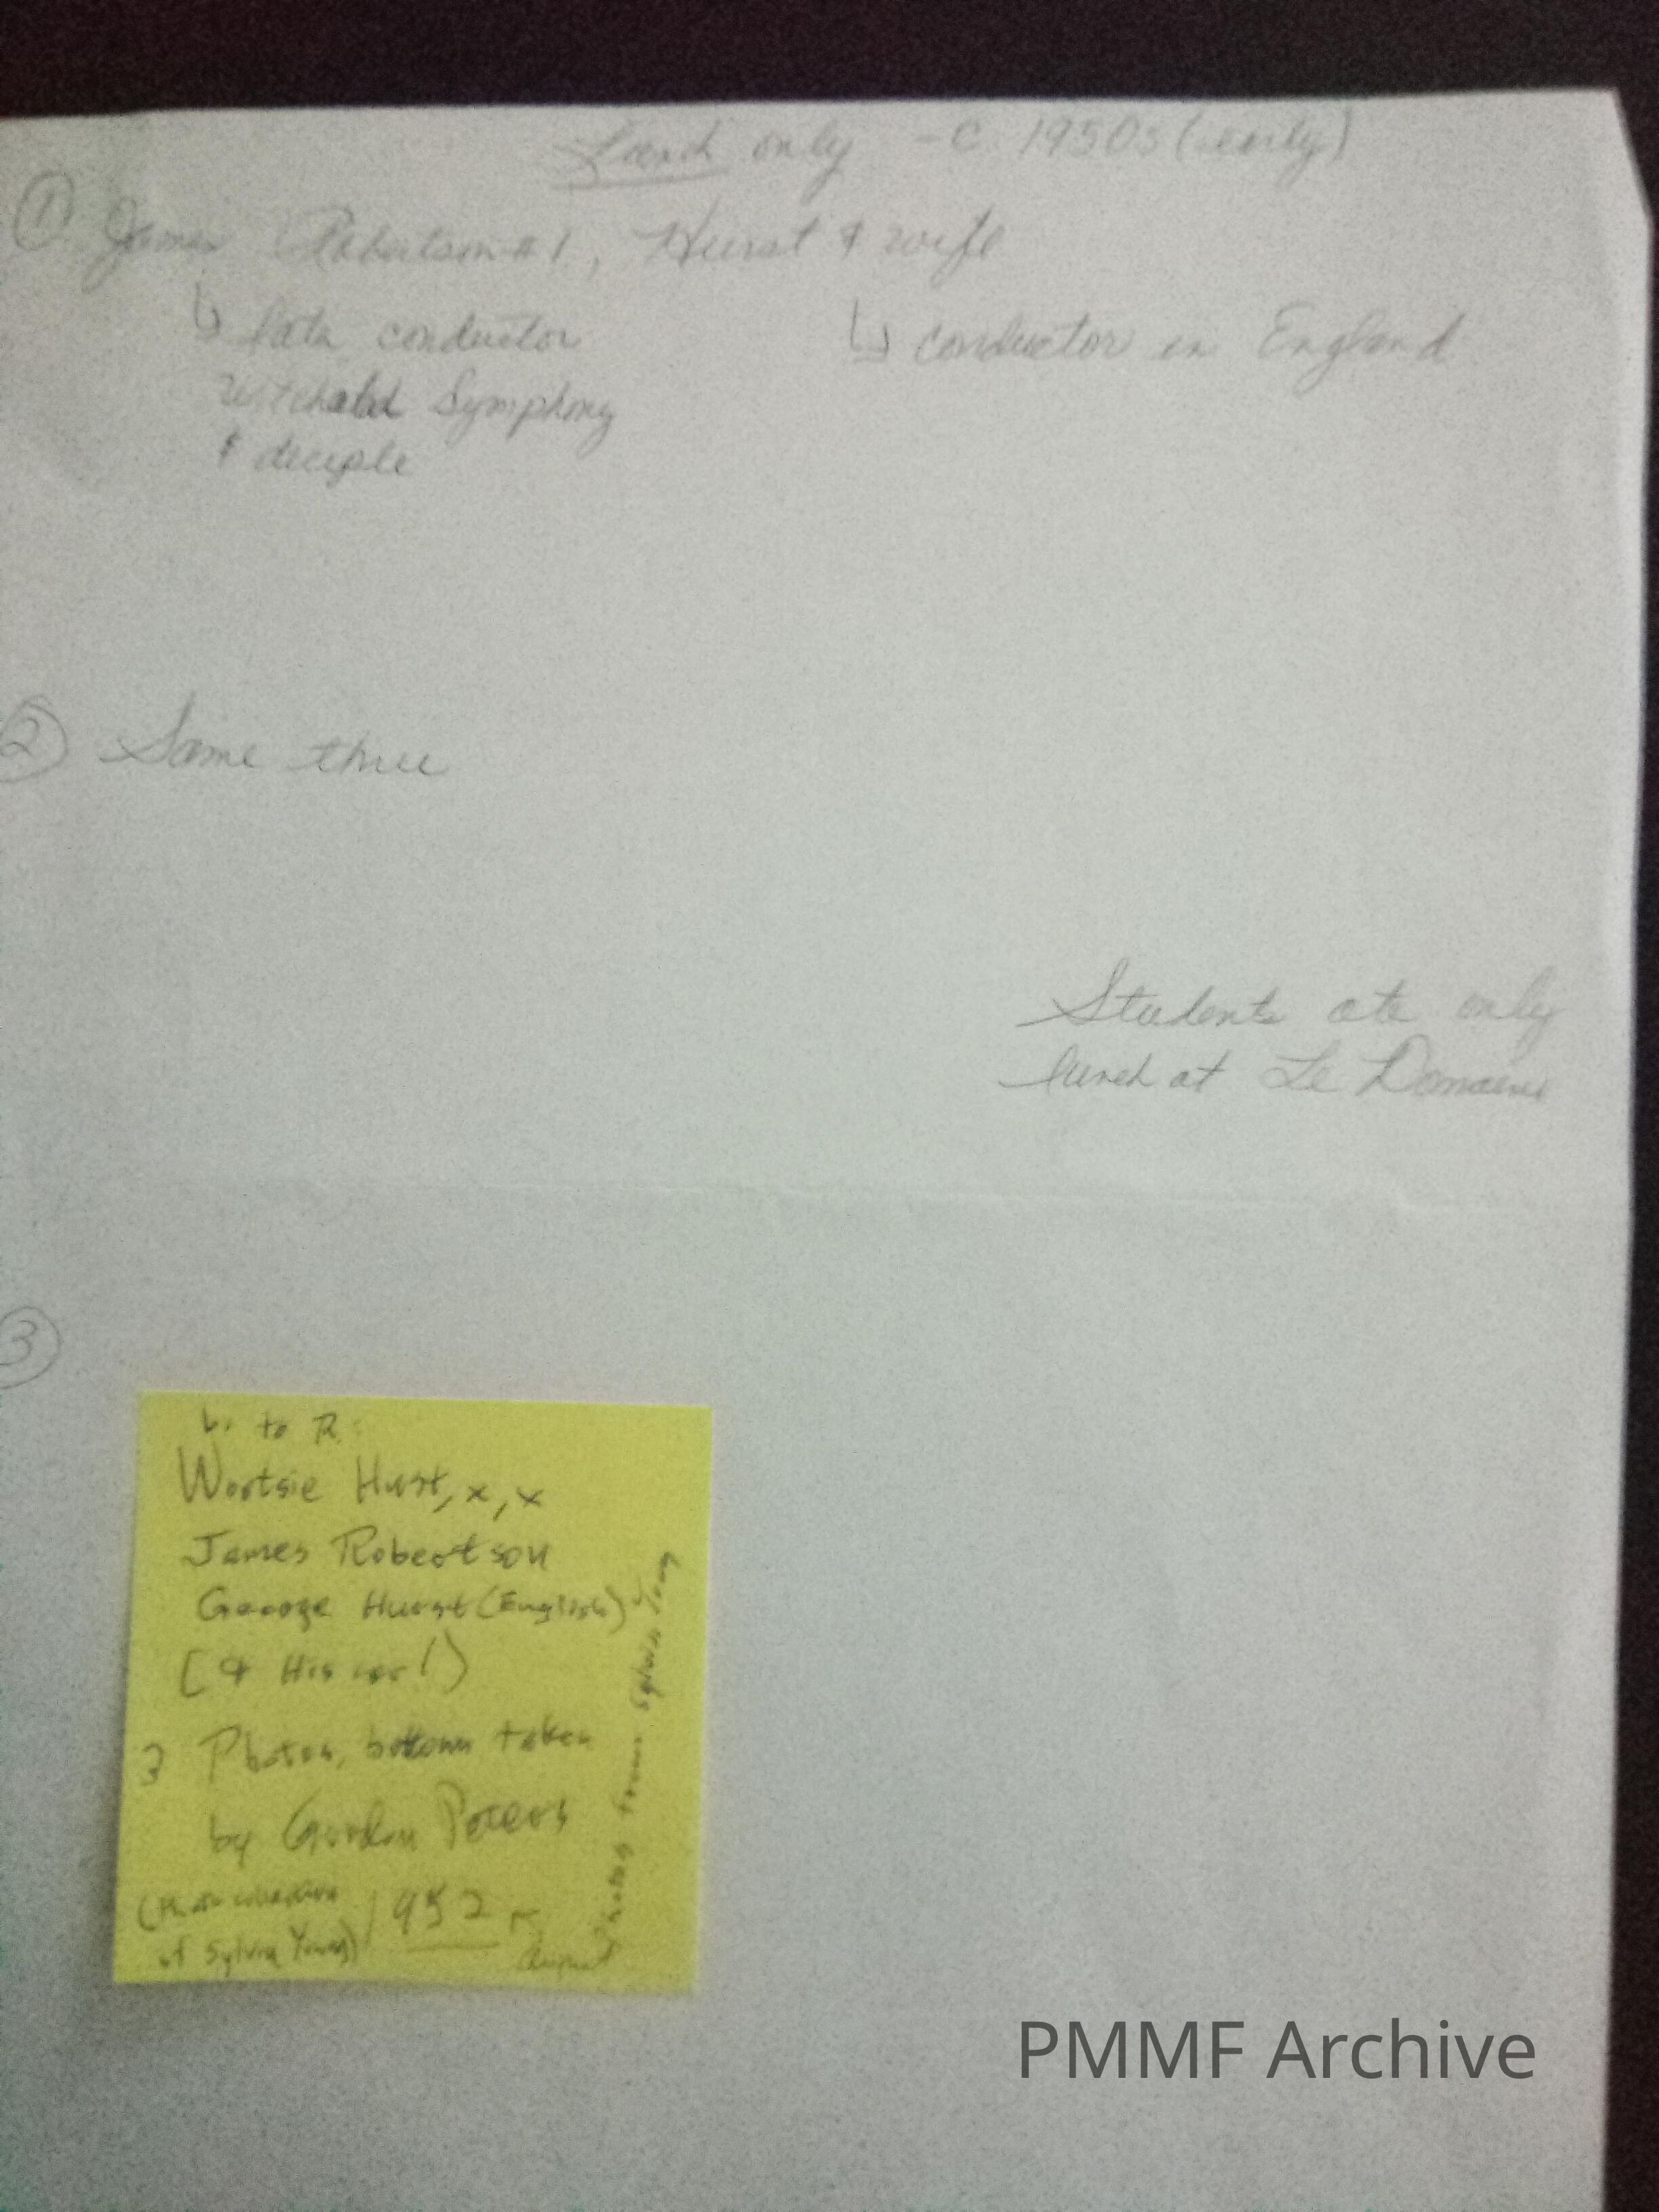 Lunch only - C 1950s (early)
① James Robertson #1, Hurst & wife
↳ late conductor
Witchatah Symphony
& deciple
↳ conductor in England
② Same three
Students ate only
lunch at Le Domaine
③
L. to R:
Wootsie Hurst, x, x
James Robertson
George Hurst (English)
[& His car!)
3 Photos, bottom taken
by Gordon Peters
(Photo collection
of Sylvia Young)
1952
August
Photos from Sylvia Young
PMMF Archive